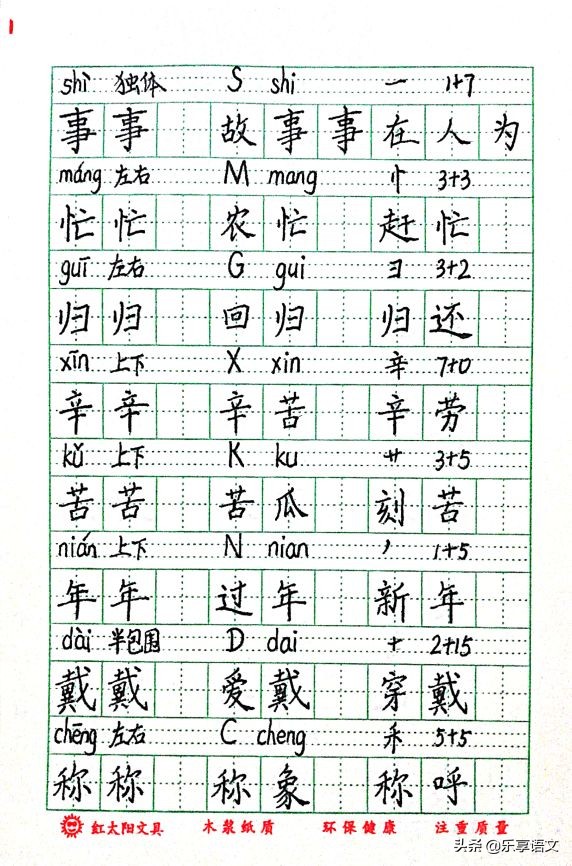 1
shì 独体 S shi 一 1+7
事事 故事 事在人为
máng 左右 M mang 忄 3+3
忙忙 农忙 赶忙
guī 左右 G gui 彐 3+2
归归 回归 归还
xīn 上下 X xin 辛 7+0
辛辛 辛苦 辛劳
kǔ 上下 K ku 艹 3+5
苦苦 苦瓜 刻苦
nián 上下 N nian 丿 1+5
年年 过年 新年
dài 半包围 D dai 十 2+15
戴戴 爱戴 穿戴
chēng 左右 C cheng 禾 5+5
称称 称象 称呼
红太阳文具 木浆纸质 环保健康 注重质量
头条 @乐享语文